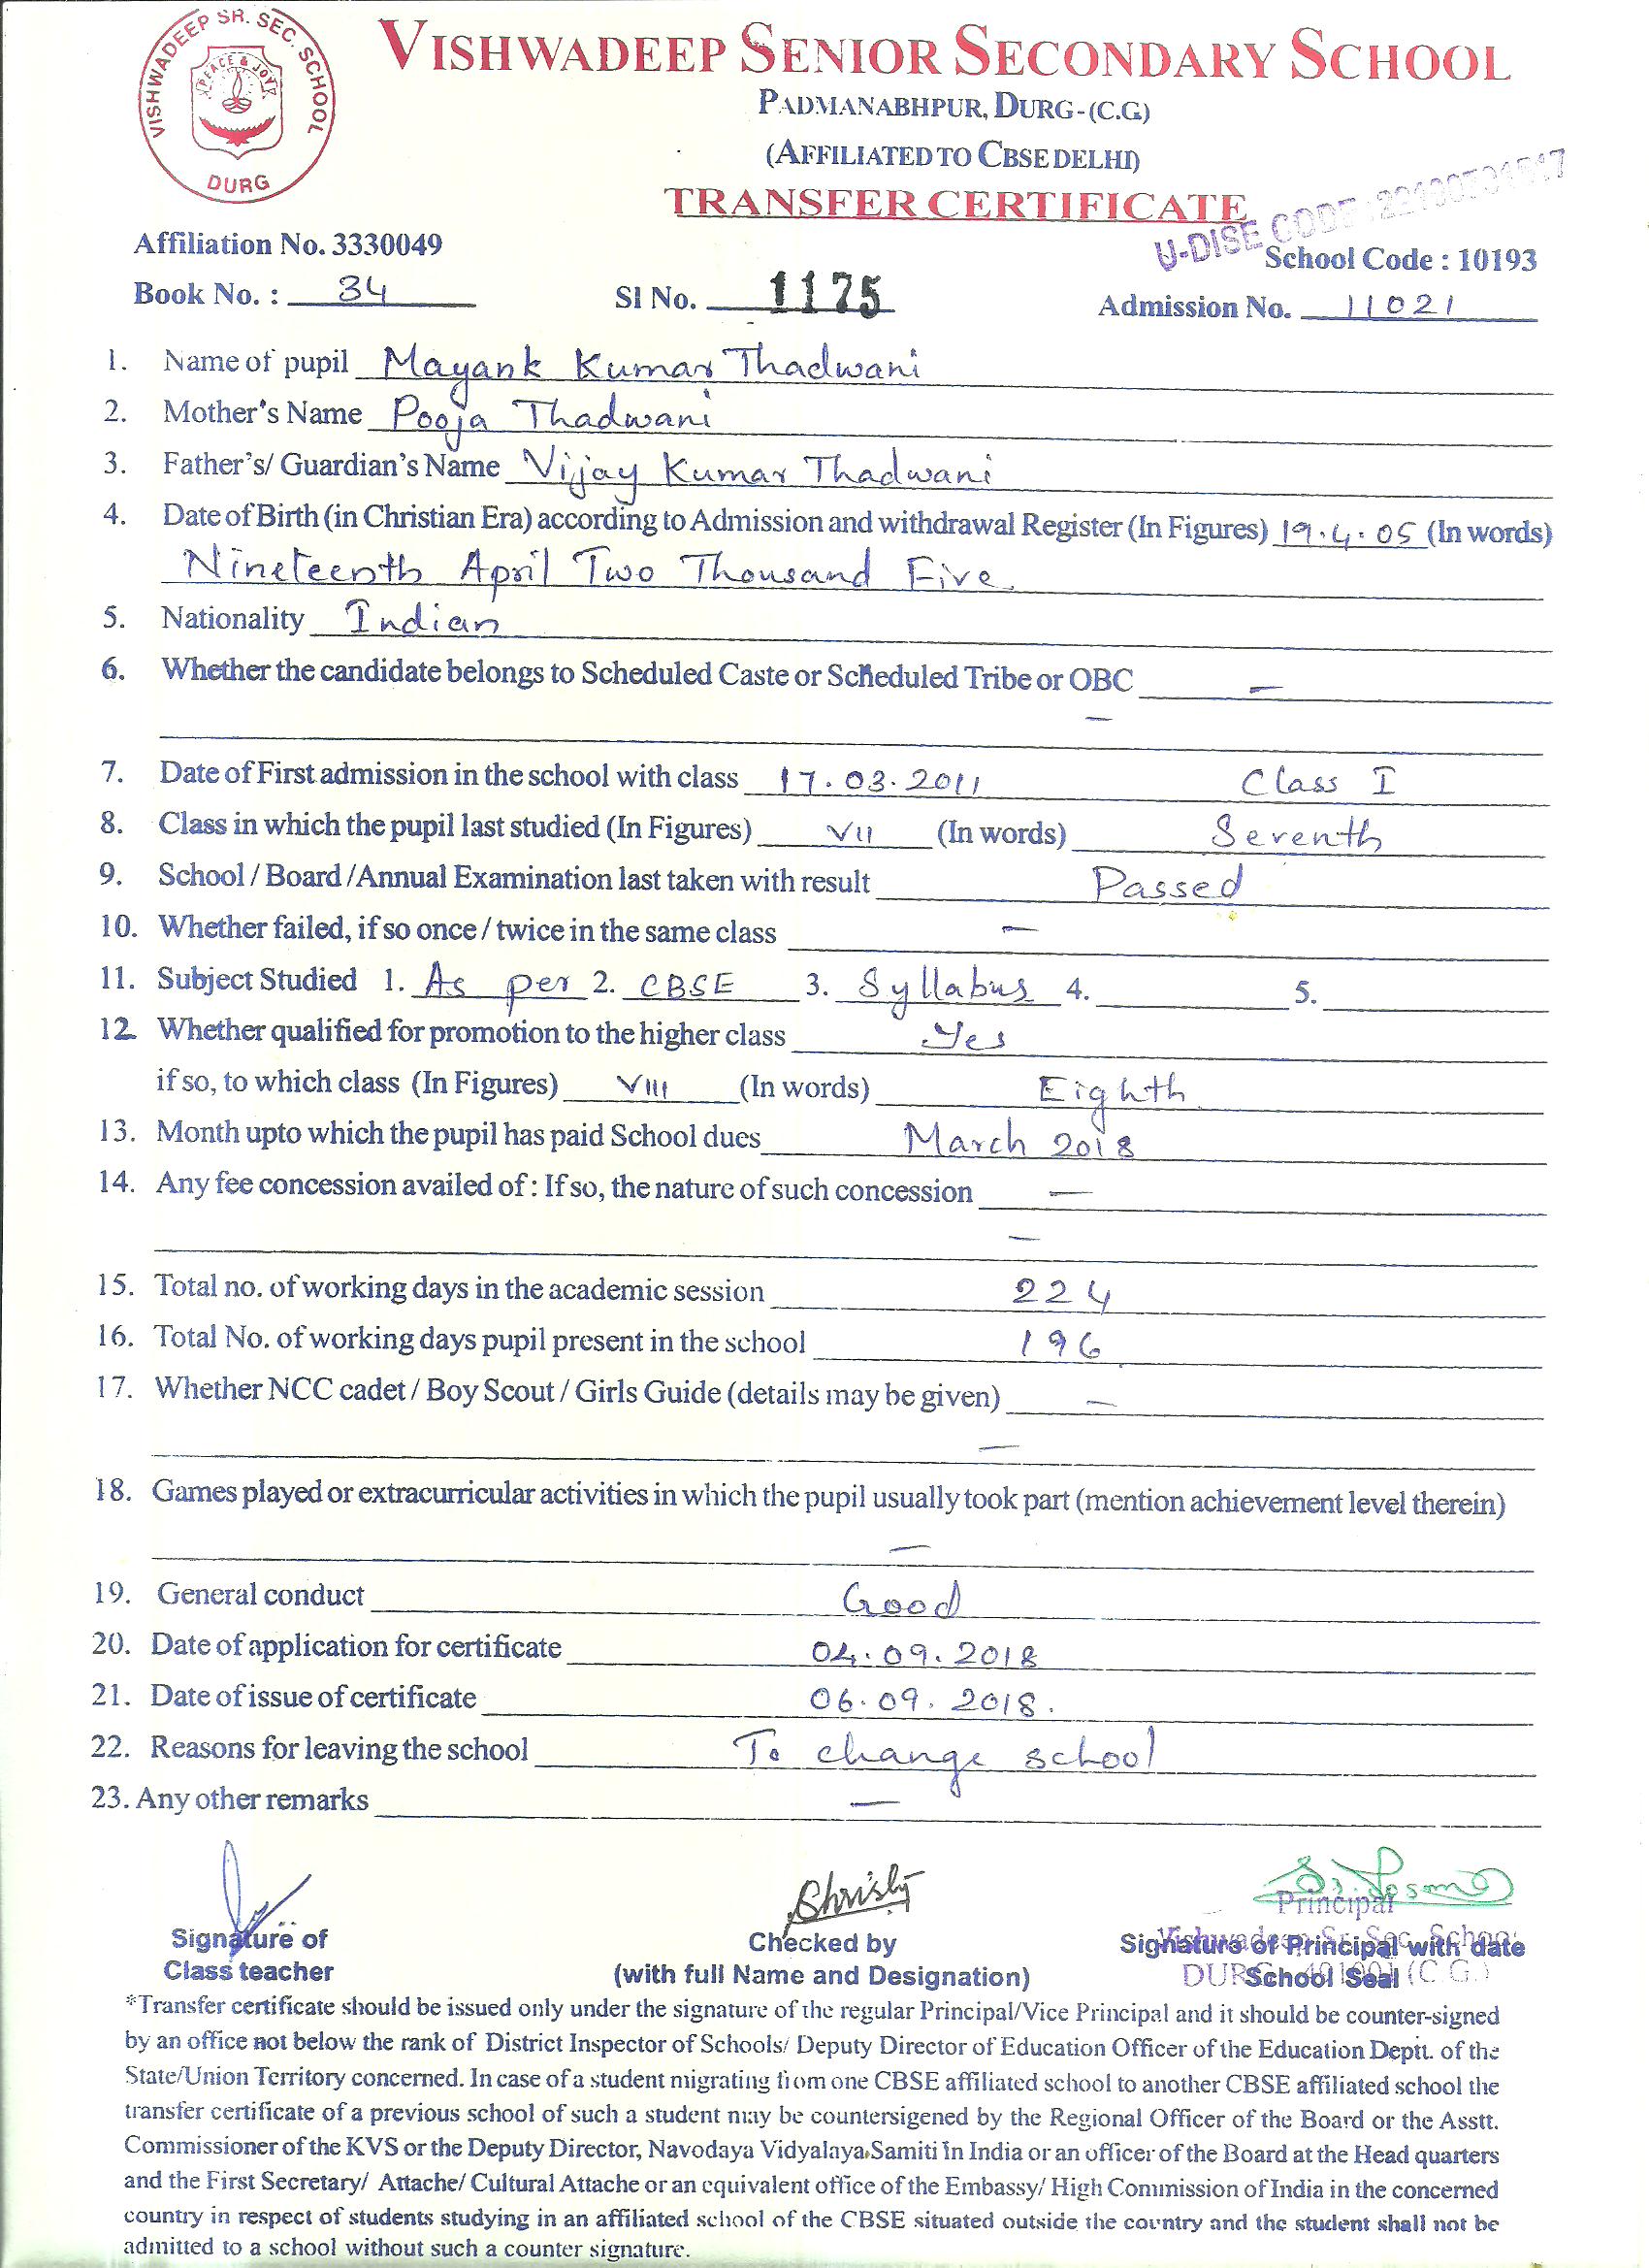 VISHWADEEP SR. SEC. SCHOOL
PEACE & JOY
DURG
VISHWADEEP SENIOR SECONDARY SCHOOL
PADMANABHPUR, DURG-(C.G.)
(AFFILIATED TO CBSE DELHI)
TRANSFER CERTIFICATE
U-DISE CODE
Affiliation No. 3330049
School Code : 10193
Book No. : 34 Sl No. 1175 Admission No. 11021
1. Name of pupil Mayank Kumar Thadwani
2. Mother's Name Pooja Thadwani
3. Father's/ Guardian's Name Vijay Kumar Thadwani
4. Date of Birth (in Christian Era) according to Admission and withdrawal Register (In Figures) 19.4.05 (In words)
Nineteenth April Two Thousand Five
5. Nationality Indian
6. Whether the candidate belongs to Scheduled Caste or Scheduled Tribe or OBC —
—
7. Date of First admission in the school with class 17.03.2011 Class I
8. Class in which the pupil last studied (In Figures) VII (In words) Seventh
9. School / Board /Annual Examination last taken with result Passed
10. Whether failed, if so once / twice in the same class —
11. Subject Studied 1. As per 2. CBSE 3. Syllabus 4. 5.
12. Whether qualified for promotion to the higher class Yes
if so, to which class (In Figures) VIII (In words) Eighth
13. Month upto which the pupil has paid School dues March 2018
14. Any fee concession availed of : If so, the nature of such concession —
—
15. Total no. of working days in the academic session 224
16. Total No. of working days pupil present in the school 196
17. Whether NCC cadet / Boy Scout / Girls Guide (details may be given) —
—
18. Games played or extracurricular activities in which the pupil usually took part (mention achievement level therein)
—
19. General conduct Good
20. Date of application for certificate 04.09.2018
21. Date of issue of certificate 06.09.2018.
22. Reasons for leaving the school To change school
23. Any other remarks —
Christy
Principal
Vishwadeep Sr. Sec. School
DURG 491001 (C.G.)
Signature of Checked by Signature of Principal with date
Class teacher (with full Name and Designation) School Seal
*Transfer certificate should be issued only under the signature of the regular Principal/Vice Principal and it should be counter-signed
by an office not below the rank of District Inspector of Schools/ Deputy Director of Education Officer of the Education Deptt. of the
State/Union Territory concerned. In case of a student migrating from one CBSE affiliated school to another CBSE affiliated school the
transfer certificate of a previous school of such a student may be countersigened by the Regional Officer of the Board or the Asstt.
Commissioner of the KVS or the Deputy Director, Navodaya Vidyalaya Samiti in India or an officer of the Board at the Head quarters
and the First Secretary/ Attache/ Cultural Attache or an equivalent office of the Embassy/ High Commission of India in the concerned
country in respect of students studying in an affiliated school of the CBSE situated outside the country and the student shall not be
admitted to a school without such a counter signature.